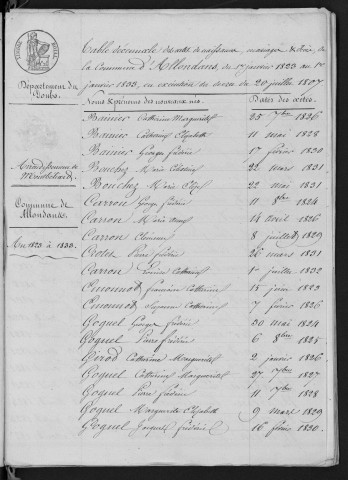 Table décennale des actes de naissance, mariages & décès, de
la Commune d'Allondans, du 1er janvier 1823 au 1er
janvier 1833, en exécution du décret du 20 juillet 1807
Département du
Doubs.
Arrondissement de
Montbéliard
Commune de
Allondans.
An 1823 à 1833.
Noms & prénoms des nouveaux nés. Dates des actes.
Bainier Catherine Marguerite 25 7bre 1826
Bainier Catherine Elizabeth 11 mai 1828
Bainier George Frédéric 17 février 1830
Bouchez Marie 22 mars 1831
Bouchez Marie 22 mai 1831
Carron George Frédéric 11 8bre 1824
Carron Marie 14 avril 1826
Carron 8 juillet 1829
Pierre Frédéric 26 mars 1831
Carron Catherine 1er juillet 1832
Catherine 15 juin 1823
Suzanne Catherine 7 février 1826
Goguel George Frédéric 30 mai 1824
Goguel Pierre Frédéric 6 8bre 1825
Girod Catherine Marguerite 2 janvier 1826
Goguel Catherine Marguerite 27 7bre 1827
Goguel Pierre Frédéric 11 7bre 1828
Goguel Marguerite Elizabeth 9 mars 1829
Goguel Jacques Frédéric 16 février 1830.